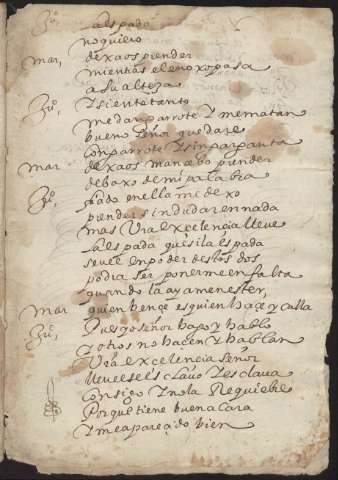 la espada
no quiero
Mar, dexaos prender
mientras el enoxo pasa
a su alteza
Ju.º Y si entetanto
me dan garrote Y me matan
bueno señor quedare
con garrote Y sin garganta
Mar dexaos mancebo prender
debaxo de mi palabra
Ju.º fiado en ella me dexo
prender sin dudar en nada
mas Vra excelencia lleve
la espada que si la espada
se vee en poder destos dos
podra ser ponerme en falta
quando la aya menester,
Mar quien bençe es quien haçe y calla
Ju.º Pues yo señor hago y hablo
y otros no hacen y hablan
Vra excelencia señor
lleve esclavo Y esclava
consigo Y no la Requiebre
Porque tiene buena cara
Y me a pareçido bien